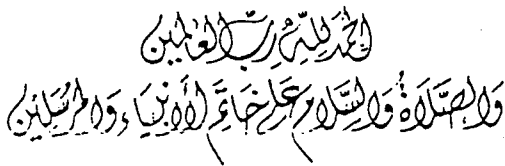 الحمد لله رب العالمين
والصلاة والسلام على خاتم الأنبياء والمرسلين